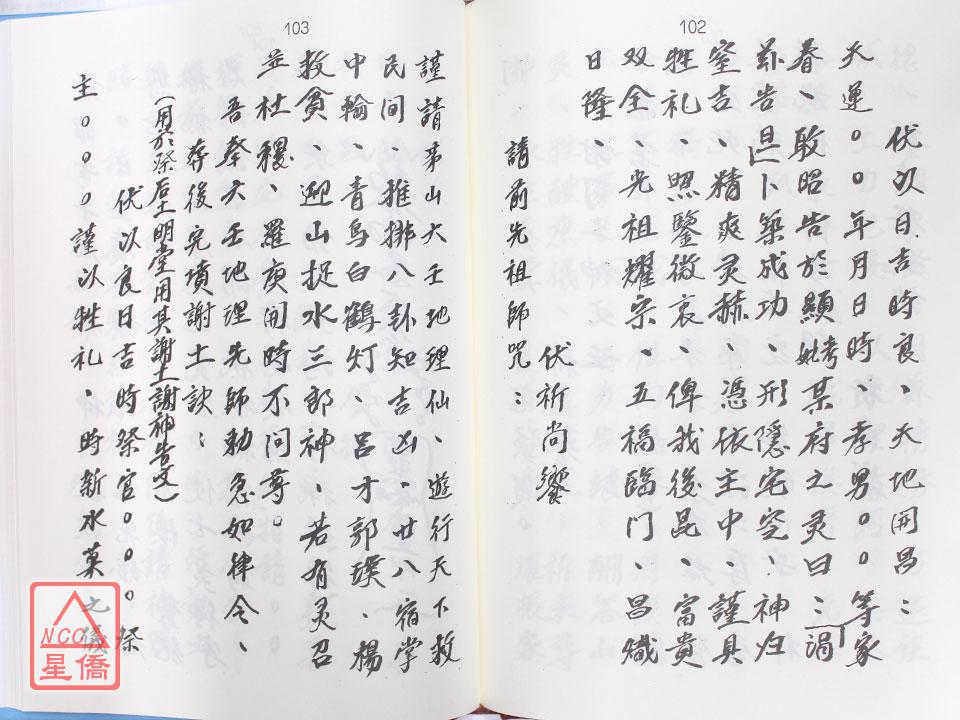 102
伏以日吉時良、天地開昌：
天運○○年月日時、孝男○○等家
春、敢昭告於顯考妣某府之灵曰：渴
蔀告昰卜築成功、形隱宅空神归
窒吉、精爽灵赫、憑依主中、謹具
牲礼、照鑒微哀、俾我後昆、富貴
双全、光祖耀宗、五福臨门、昌熾
日隆、伏祈尚饗
請前先祖師咒：
103
謹請茅山大壬地理仙、遊行天下救
民间、推排八卦知吉凶、廿八宿掌
中輪、青鸟白鶴灯、呂才郭璞、楊
救貧、迎山捉水三郎神、若有灵召
並杜穩、羅庚開時不问尊。
吾奉大壬地理先師勅急如律令、
葬後完墳謝土訣：
(用於祭后土明堂用其謝土謝神告文)
伏以良日吉時祭官○○○祭
主○○○謹以牲礼、時新水菓之儀
NCC
星僑